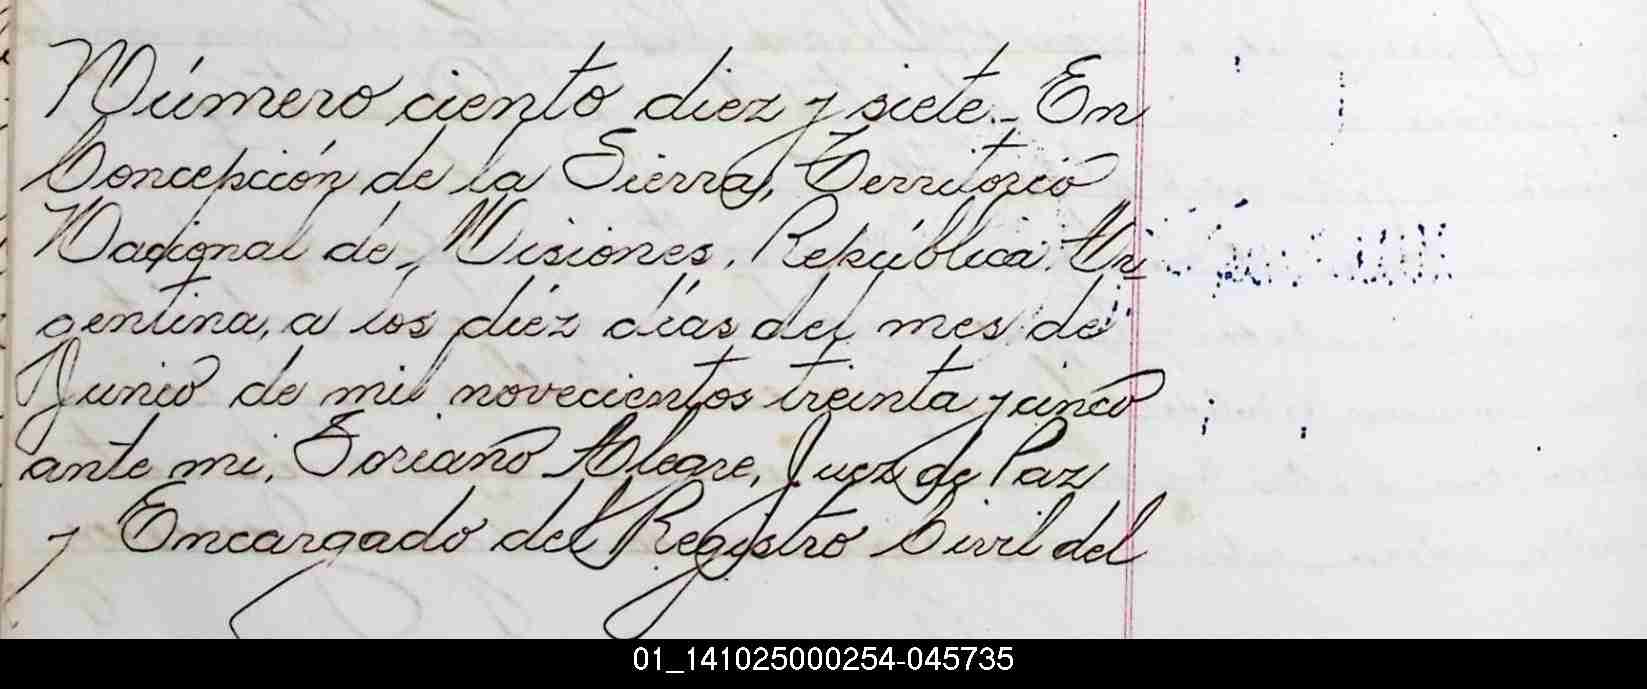 Número ciento diez y siete.- En
Concepción de la Sierra, Territorio
Nacional de Misiones, República Ar
gentina, a los diéz días del mes de
Junio de mil novecientos treinta y cinco
ante mi, Soriano Alegre, Juez de Paz
y Encargado del Registro Civil del
01_141025000254-045735